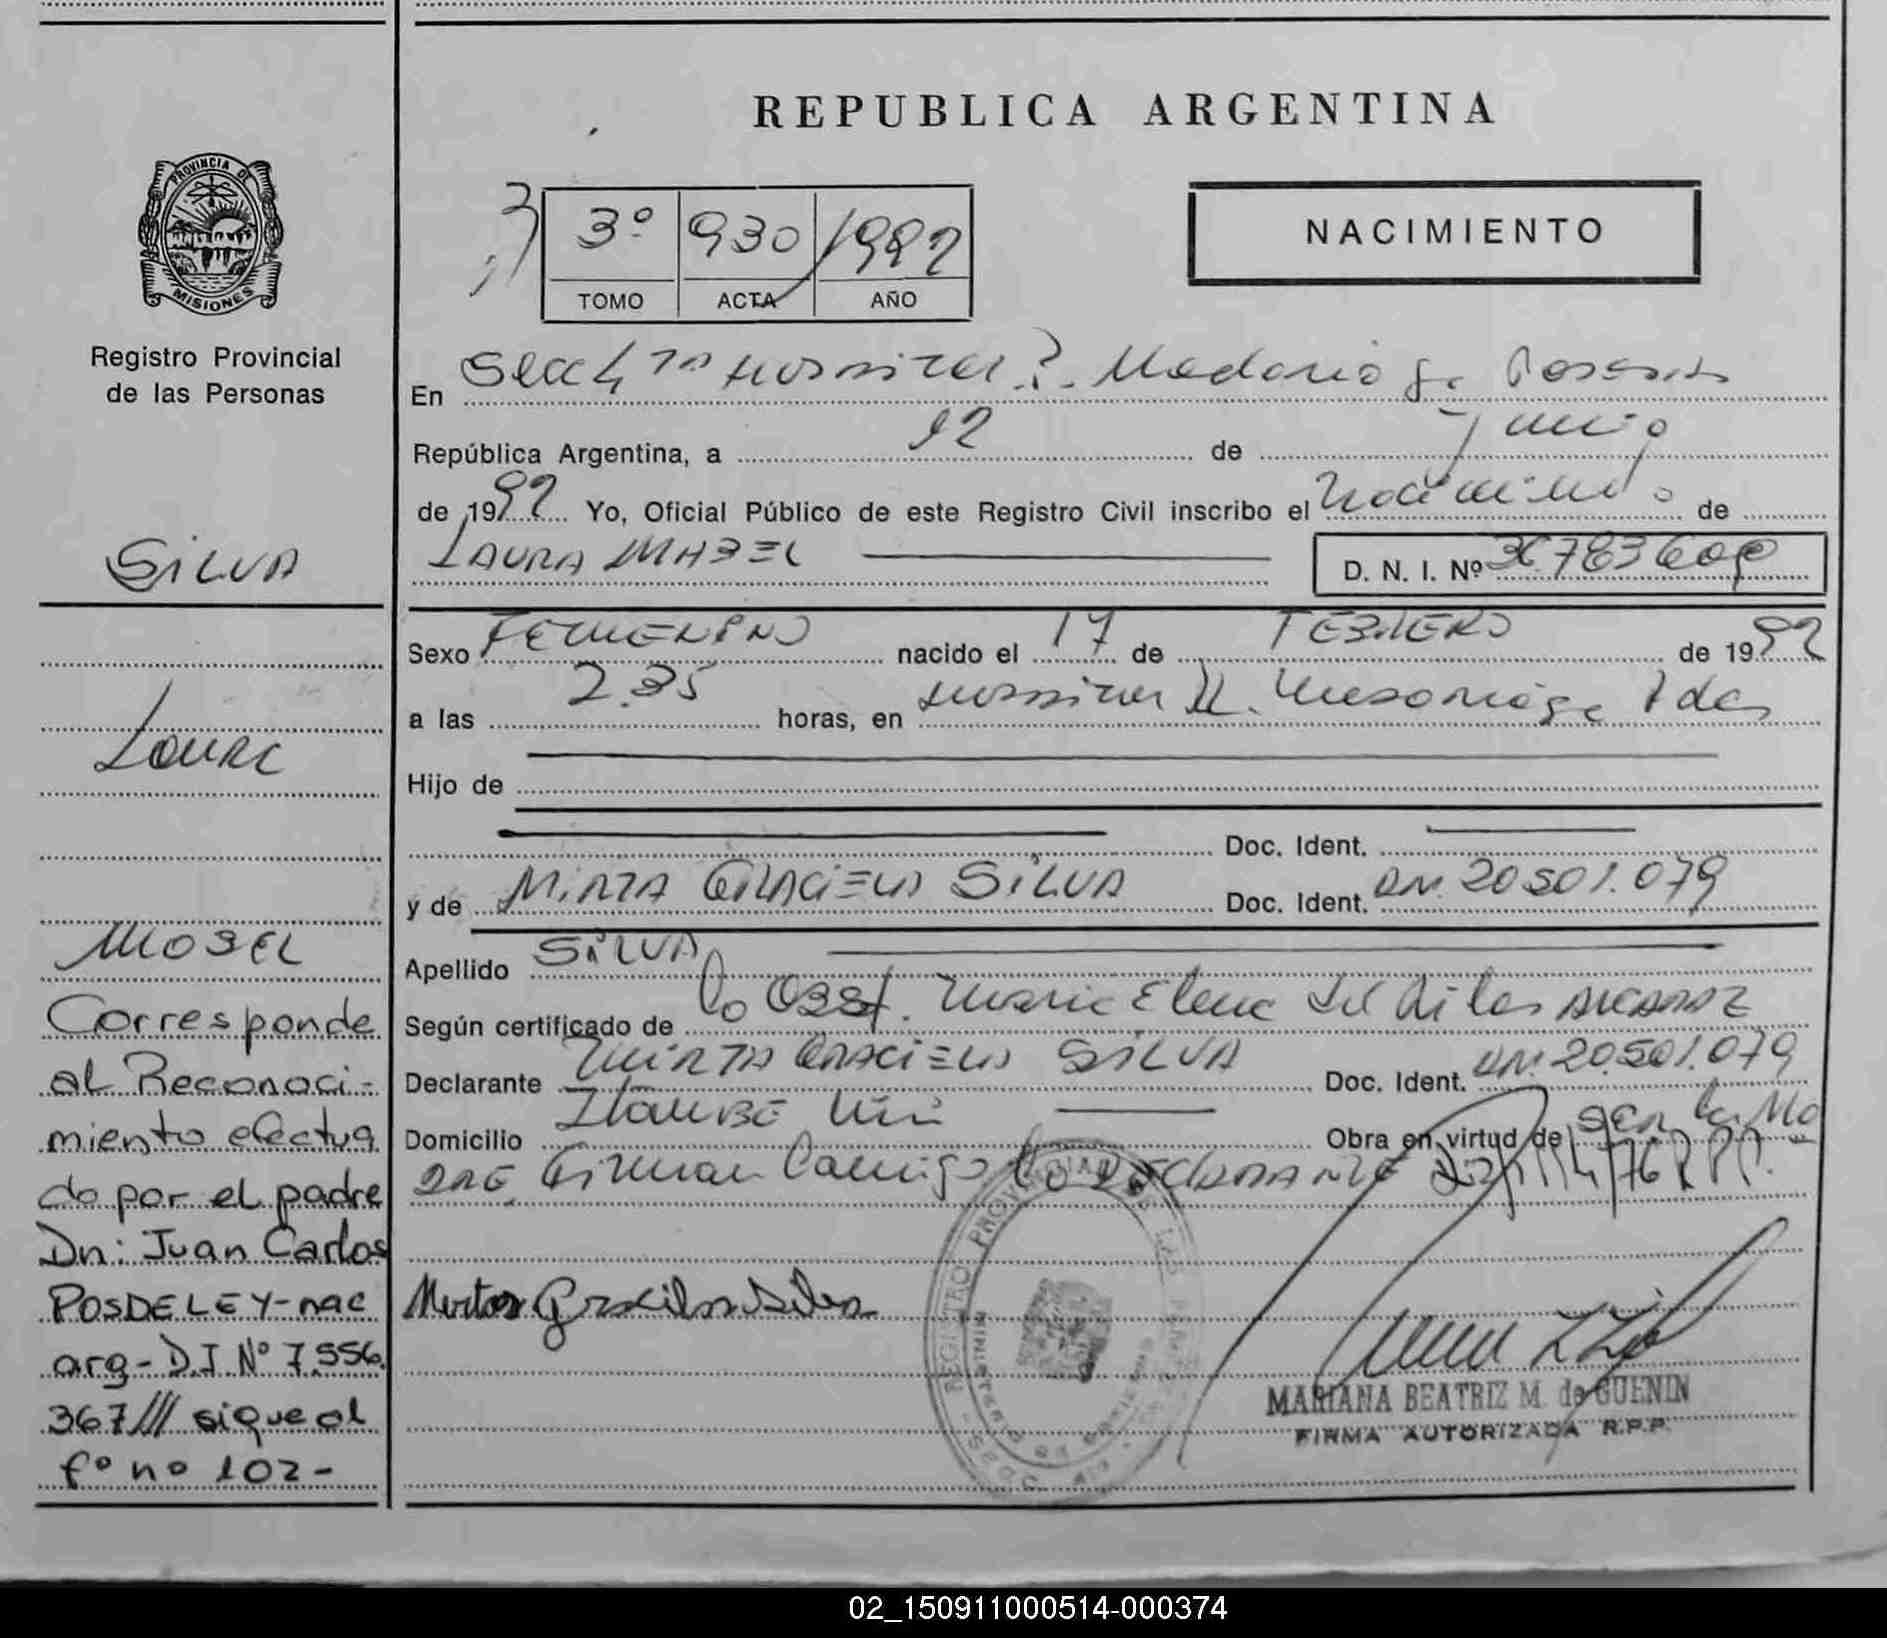 REPUBLICA ARGENTINA
PROVINCIA DE
MISIONES
Registro Provincial
de las Personas
3º 930 1992
TOMO ACTA AÑO
NACIMIENTO
SILVA
Laura
MABEL
Corresponde
al Reconoci-
miento efectua
do por el padre
Dn: Juan Carlos
POSDELEY-nac
arg-D.I.Nº 7.556.
367/// sigue al
fº nº 102-
En Secc 4 Hospital R. Madariaga Posadas
República Argentina, a 12 de Junio
de 1992 Yo, Oficial Público de este Registro Civil inscribo el Nacimiento de
LAURA MABEL D. N. I. Nº
Sexo FEMENINO nacido el 17 de FEBRERO de 1992
a las 2.35 horas, en Hospital R. Madariaga Pdas
Hijo de
Doc. Ident.
y de MIRTA GRACIELA SILVA Doc. Ident. DNI 20501.079
Apellido SILVA
Según certificado de la Obst. Maria Elena
Declarante MIRTA GRACIELA SILVA Doc. Ident. DNI 20.501.079
Domicilio Itaembe Mini Obra en virtud de ser la Ma
dre Firman Conmigo la DECLARANTE
Mirta Graciela Silva
REGISTRO PROVINCIAL DE LAS
MARIANA BEATRIZ M. de GUENIN
FIRMA AUTORIZADA R.P.P.
02_150911000514-000374